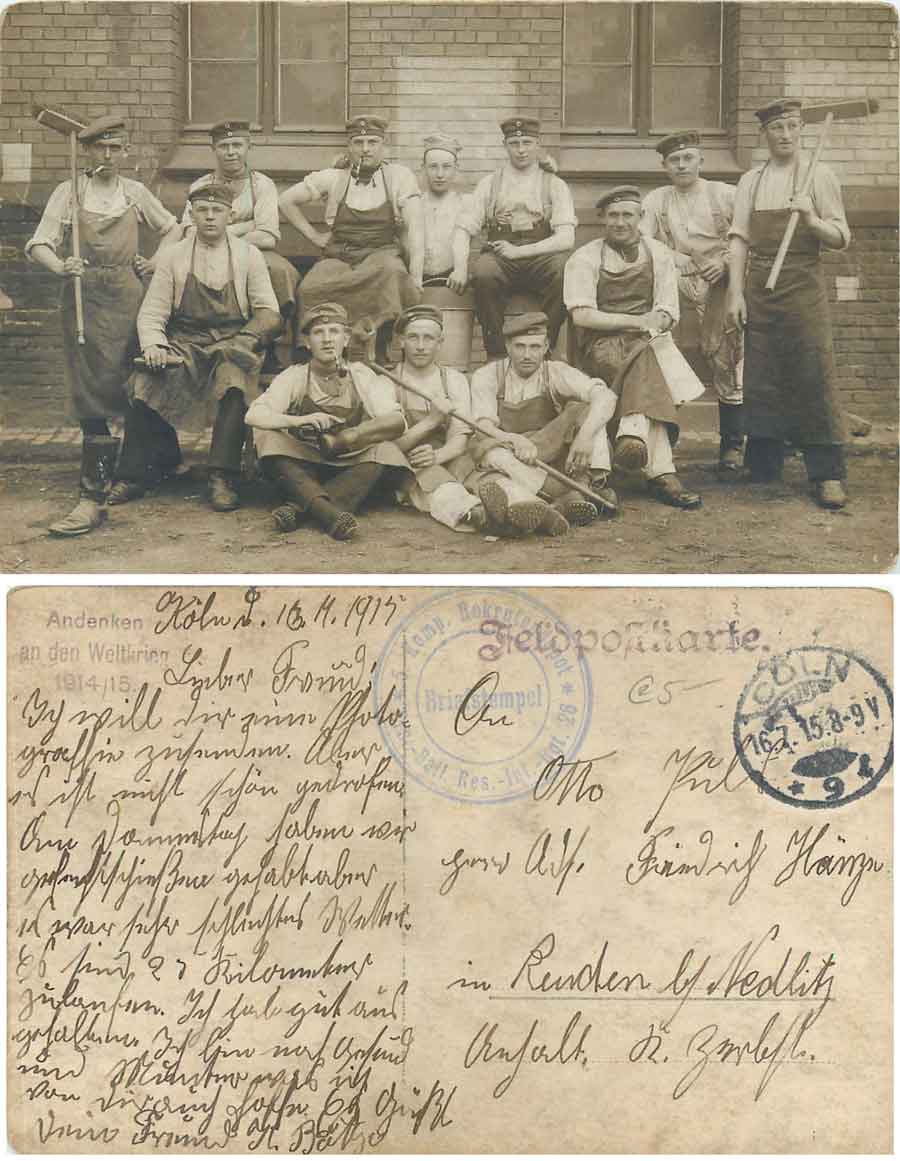 Andenken
an den Weltkrieg
1914/15.
Köln d. 1915
Lieber Freund,
Ich will dir eine Photo-
graffie zusenden. Aber
es ist nicht schön getrofen.
Am Donnerstag haben wir
gefechtschießen gehabt aber
es war sehr schlechtes Wetter.
Es sind 25 Kilometer
zulaufen. Ich habe gut aus
gehalten. Ich bin noch Gesund
und Munter was ich
von Dir auch hoffe. Es Grüßt
dein Freund
Feldpostkarte.
Komp. Rekruten-Depot
Ers.-Batl. Res.-Inf.-Rgt. 28
Briefstempel
CÖLN
16.7.15.8-9V
* 9
An
Otto
Adr. Friedrich Hänze
in Reuden b/ Nedlitz
Anhalt. K. Zerbst.